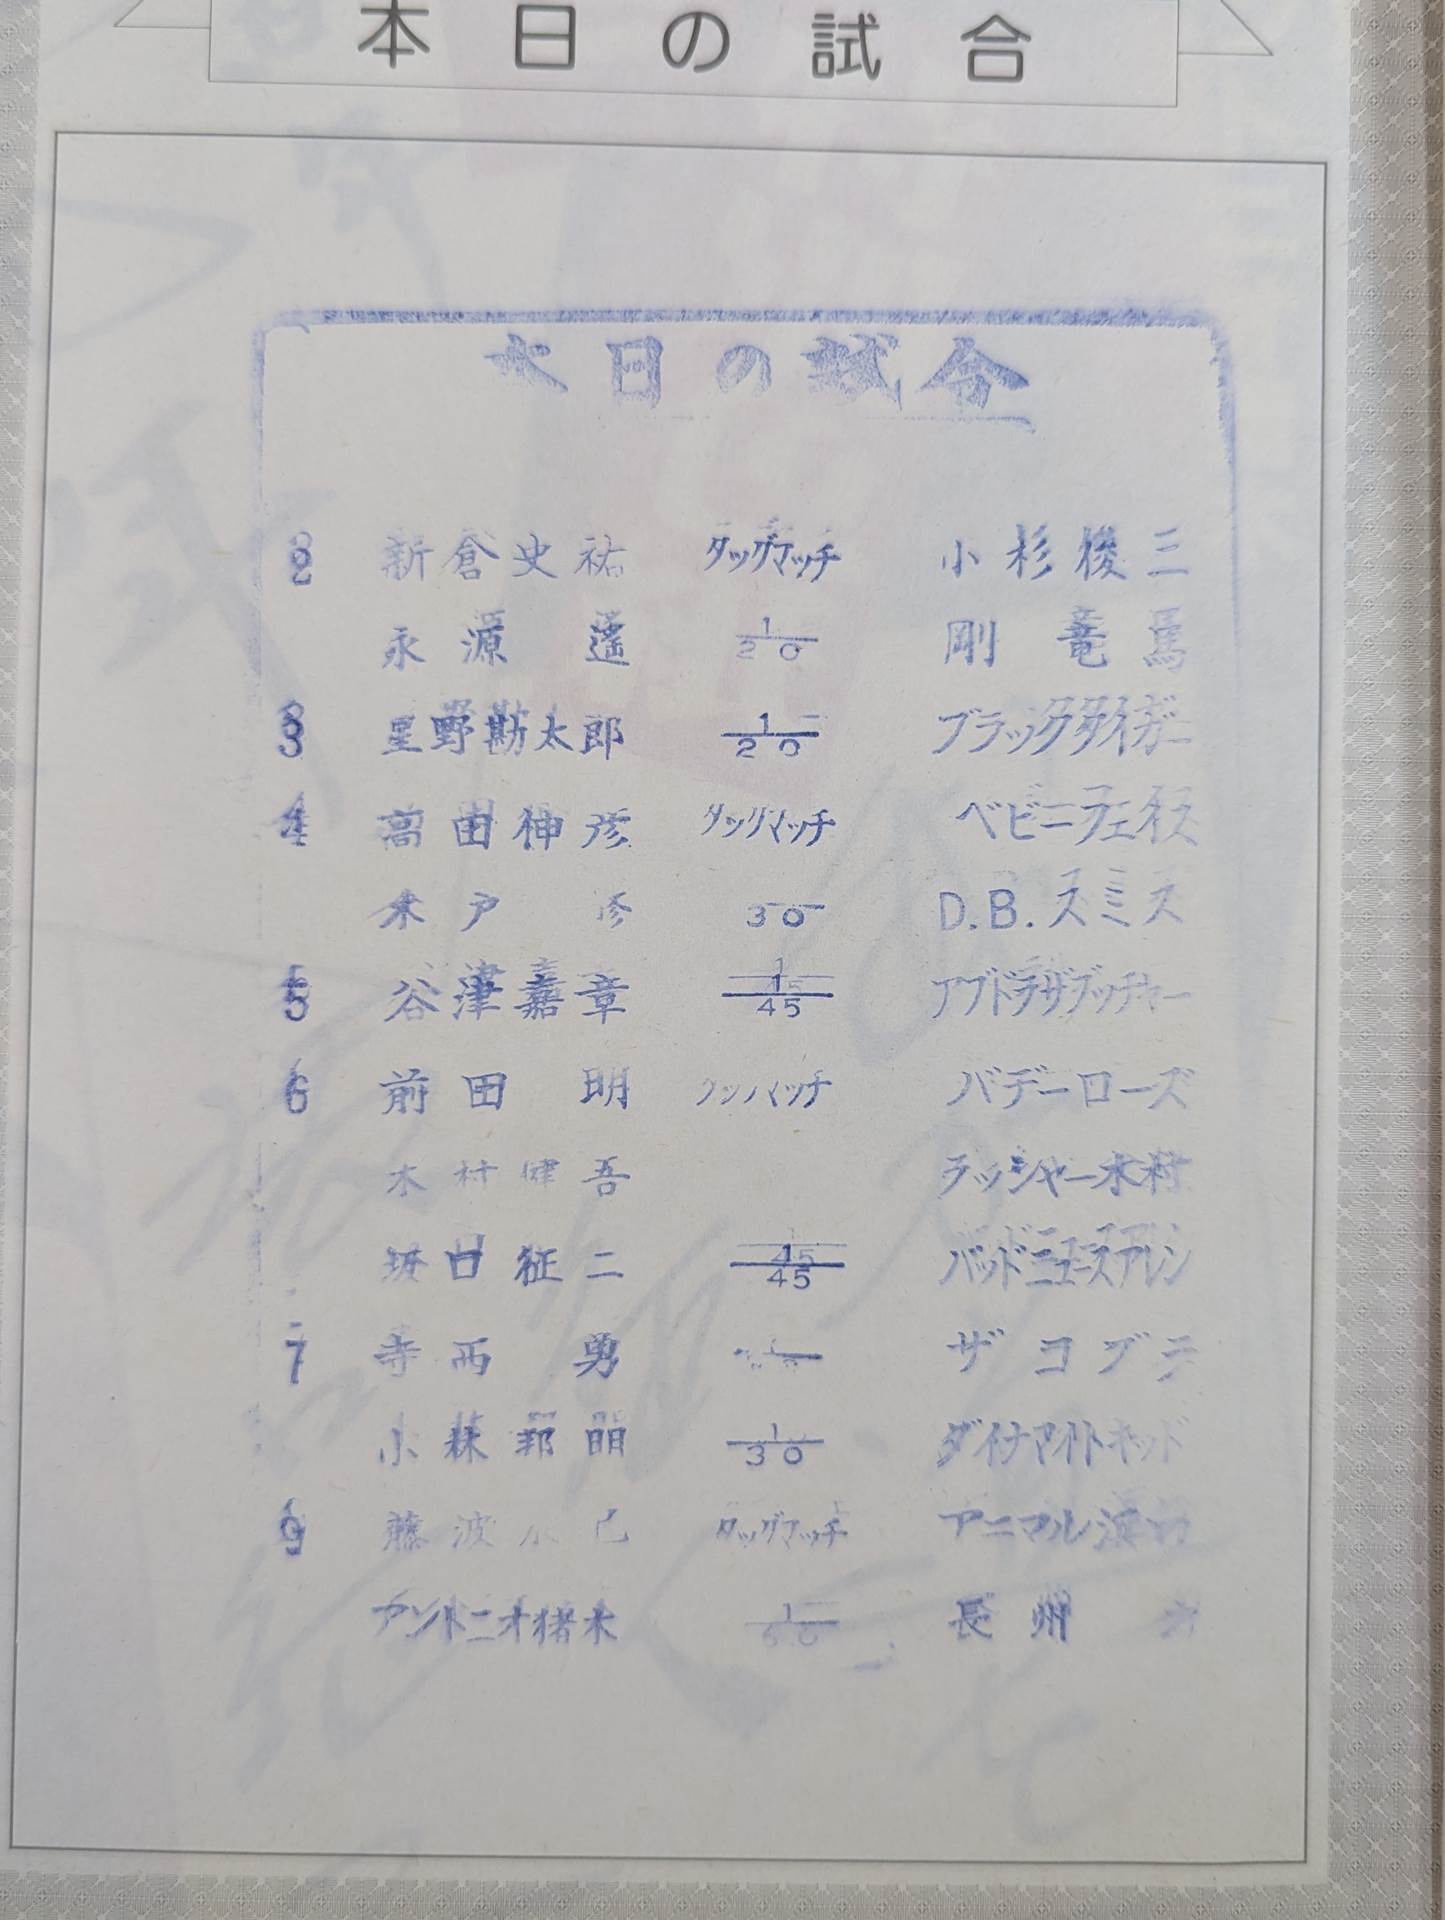 本日の試合
本日の試合
2 新倉史祐 タッグマッチ 小杉俊三
永源遙 1/20 剛竜馬
3 星野勘太郎 1/20 ブラックタイガー
4 高田伸彦 タッグマッチ ベビーフェイス
木戸修 30 D.B.スミス
5 谷津嘉章 1/45 アブドラザブッチャー
6 前田明 タッグマッチ バデーローズ
木村健吾 ラッシャー木村
坂口征二 1/45 バッドニュースアレン
7 寺西勇 ザコブラ
小林邦明 1/30 ダイナマイトキッド
9 藤波辰己 タッグマッチ アニマル浜口
アントニオ猪木 1/60 長州力